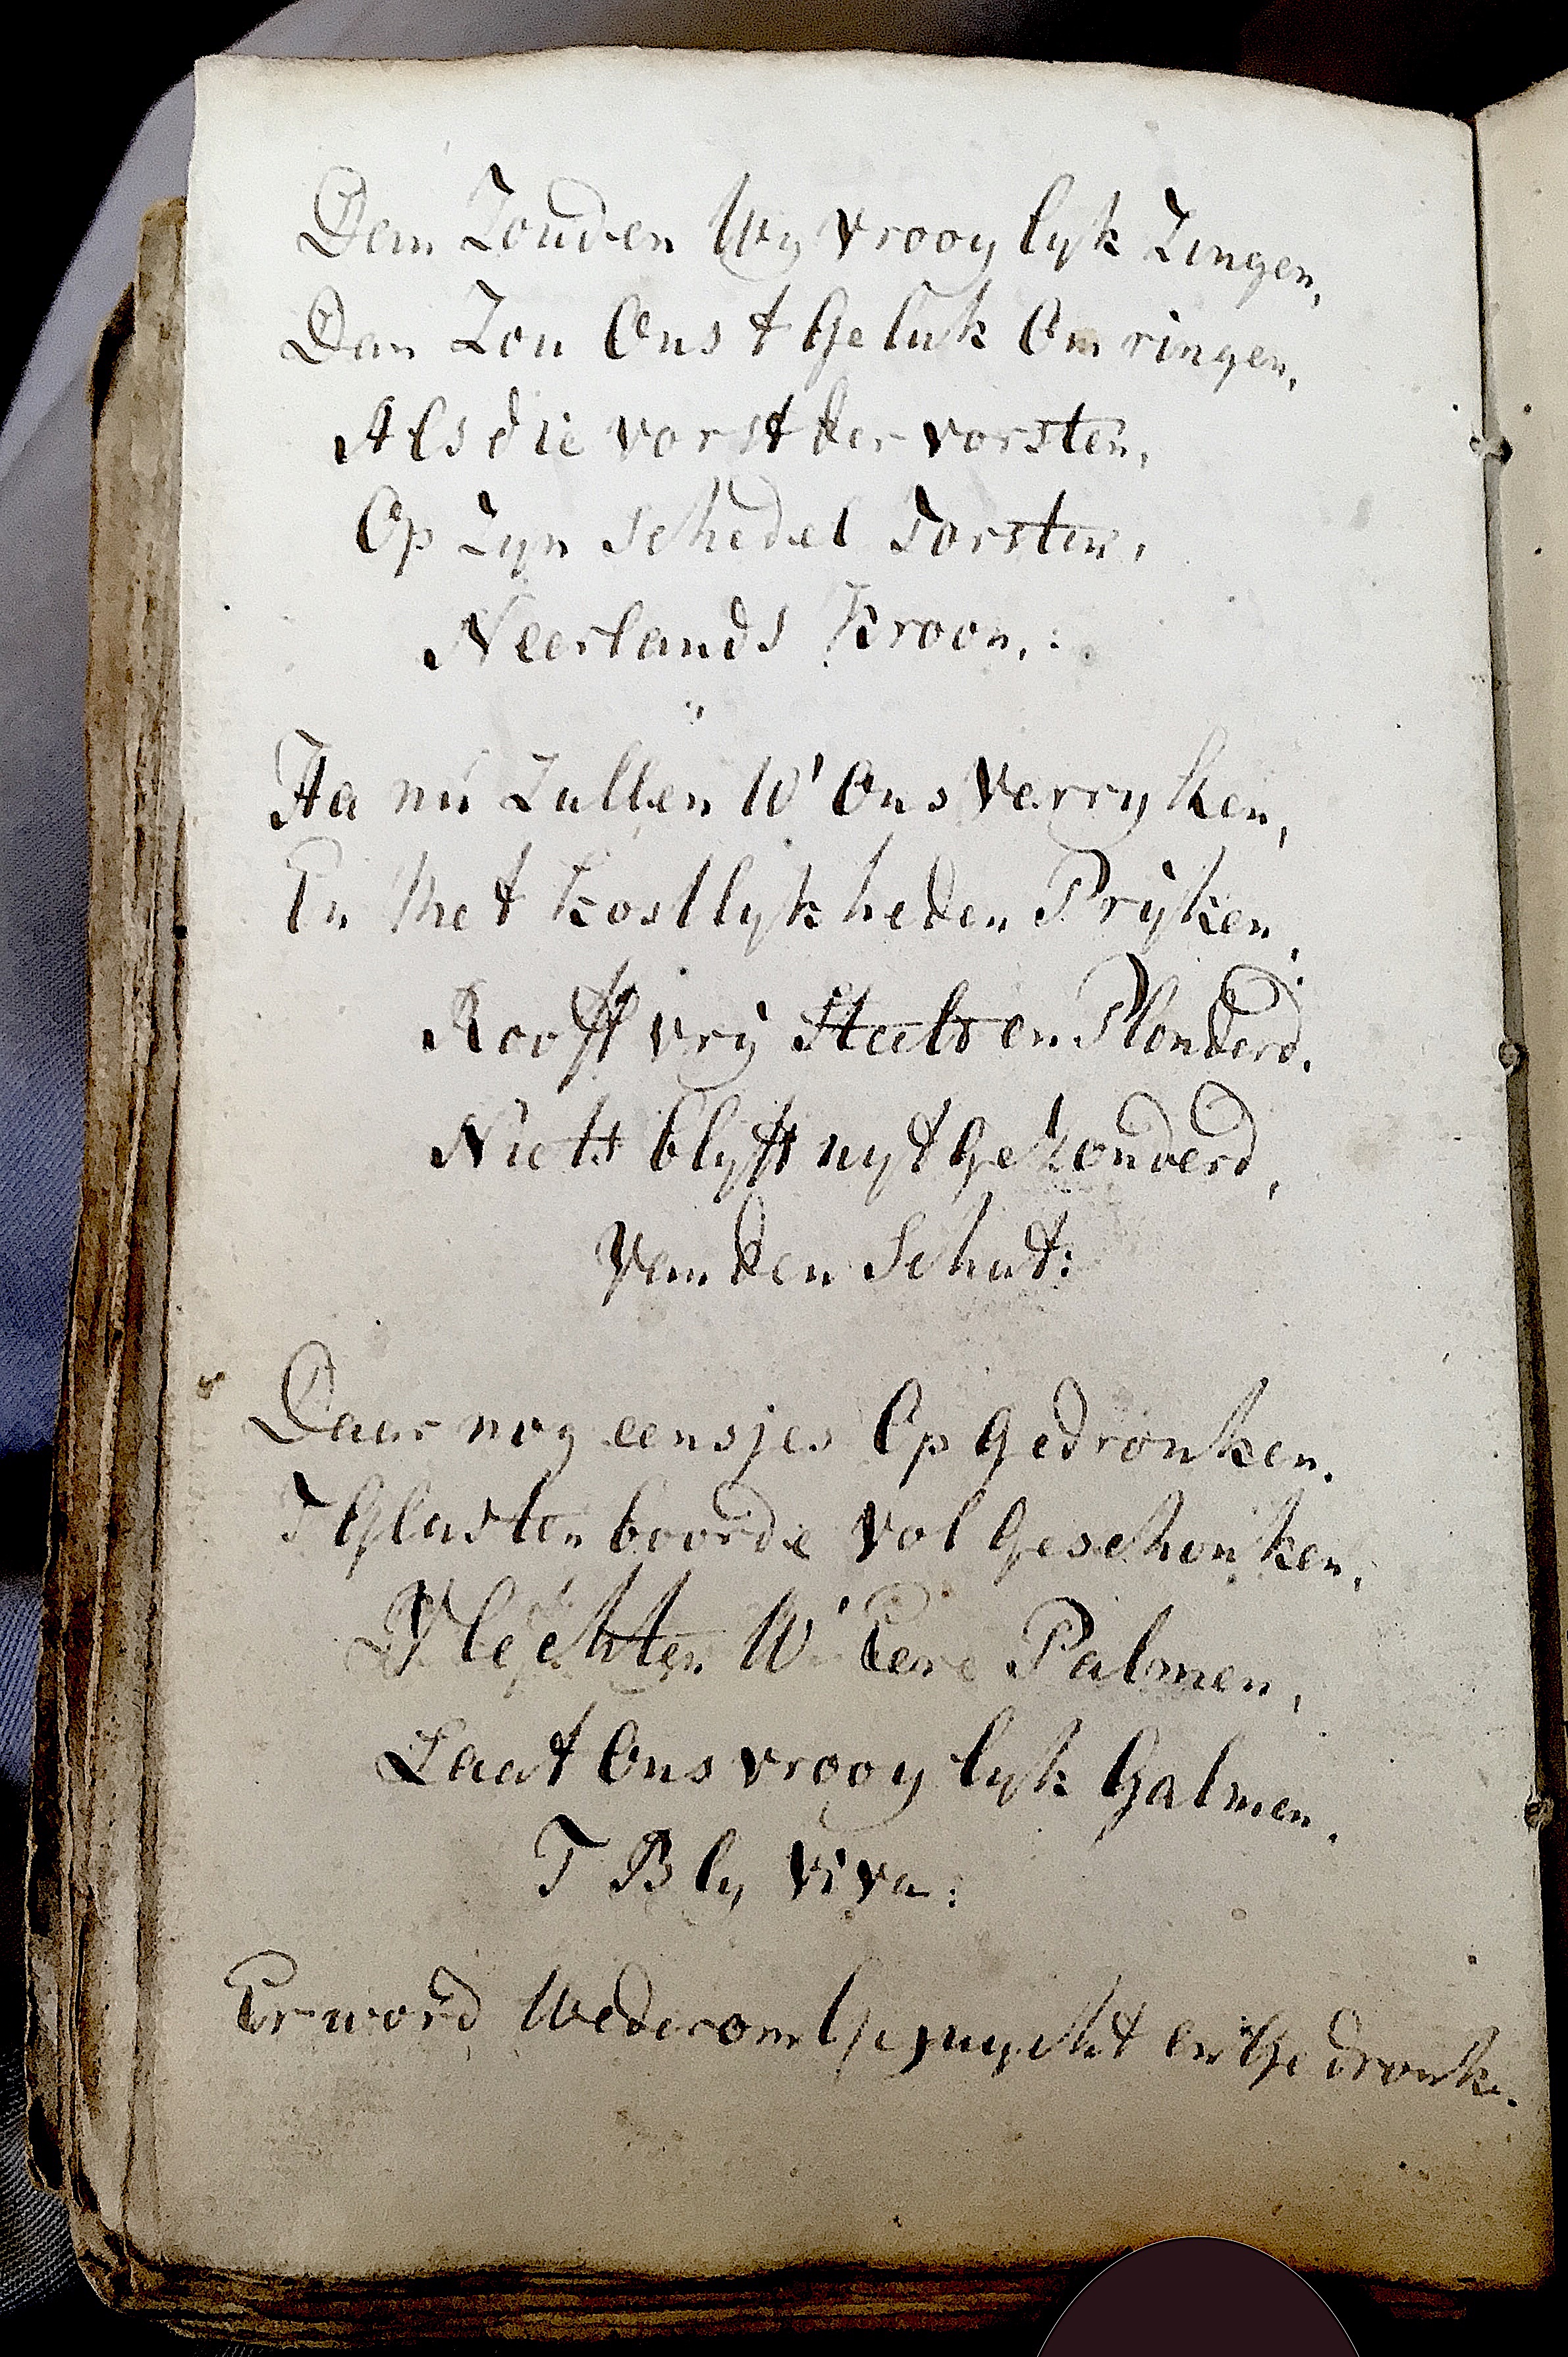 Dan Zouden Wy vrooylyk Zingen,
Dan Zou Ons t Geluk Omringen,
Als die vorst der vorsten,
Op Zyn schedel Torsten,
Neerlands Kroon,:
Ha nú Zullen W' Ons Verryken,
En Met Kostlykheden Prÿken,
Rooft vrÿ Steelt en Plonderd,
Niets blyft uyt geZonderd,
Van den Schat:
Daar nog eensjes Op gedronken,
T Glas ten boorde vol geschonken,
Vlechten W' Eere Palmen,
Laat Ons vrooylyk Galmen,
T Bly viva:
Er word Wederom Gejuycht en Gedronke.